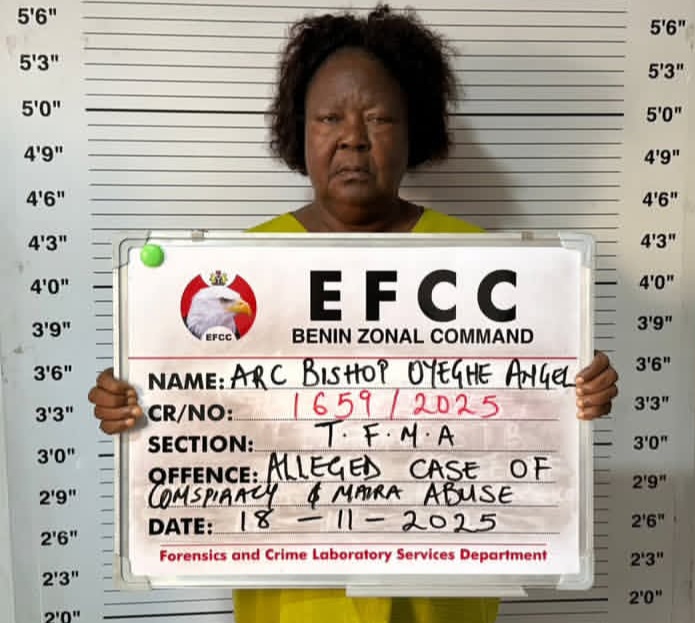 5'6" 5'6"
5'3" 5'3"
5'0" 5'0"
4'9" 4'9"
4'6" 4'6"
4'3" 4'3"
4'0" 4'0"
3'9" 3'9"
3'6" 3'6"
3'3" 3'3"
3'0" 3'0"
2'9" 2'9"
2'6" 2'6"
2'3" 2'3"
2'0" 2'0"
EFCC
EFCC
BENIN ZONAL COMMAND
NAME: ARC BISHOP OYEGHE ANGEL
CR/NO: 1659/2025
SECTION: T.F.M.A
OFFENCE: ALLEGED CASE OF
COMSPIRACY & MAIRA ABUSE
DATE: 18-11-2025
Forensics and Crime Laboratory Services Department